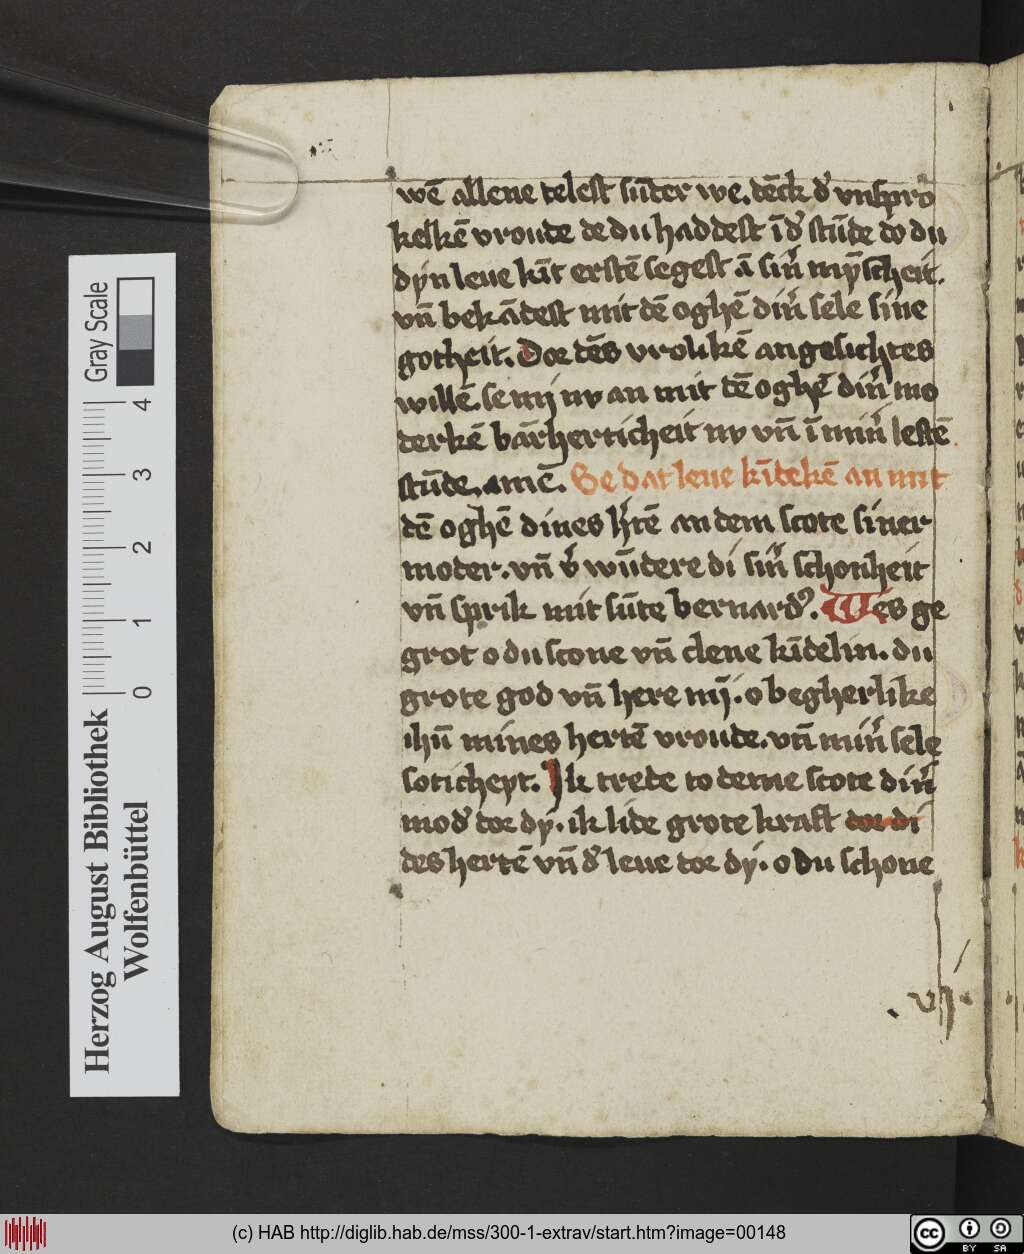 wē allene telest sūder we. dēck đ vnspro
kelkē vroude de du haddest īđ stūde do du
dyn leue kīt erstē segest ā sin̄ mȳscheit.
vn̄ bekādest mit dē oghē din̄ sele sine
gotheit. Dor dēs vrolikē angesichtes
willē. se mij nv an mit dē oghē din̄ mo
derkē bārherticheit nv vn̄ ī min̄ lestē
stūde. amē. Se dat leue kīdekē an mit
dē oghē dines h̄tē an dem scote siner
moder. vn̄ v̄ wūdere di sin̄ schonheit
vn̄ sprik mit sūte bernard. Wes ge
grot o du scone vn̄ clene kīdelin. du
grote god vn̄ here mij. o begherlike
ihū mines hertē vroude. vn̄ min̄ sele
soticheyt. Ik trede to deme scote din̄
mođ dor dy. ik lide grote kraft dor di
des hertē vn̄ đ leue dor dy. o du schone
vij
Herzog August Bibliothek
Wolfenbüttel
Gray Scale
0 1 2 3 4
(c) HAB http://diglib.hab.de/mss/300-1-extrav/start.htm?image=00148
cc BY SA